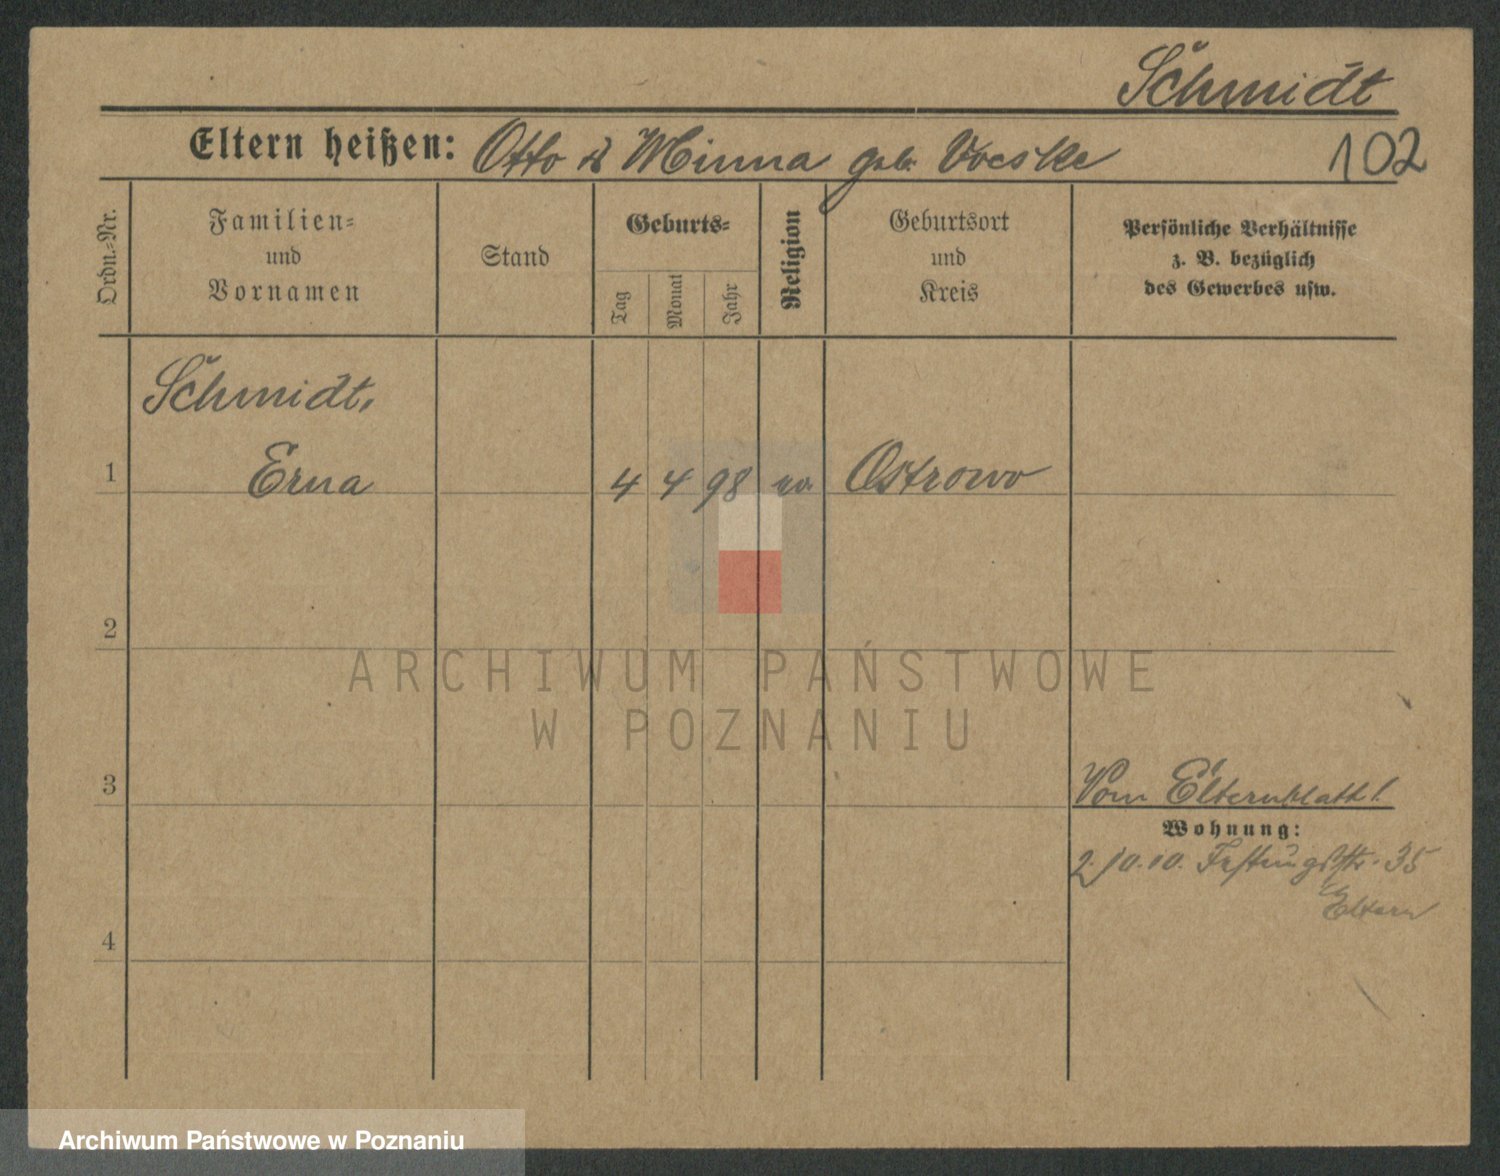 Schmidt
Eltern heißen: Otto & Minna geb. Voeske
102
Ordn.-Nr.
Familien-
und
Vornamen
Stand
Geburts-
Tag
Monat
Jahr
Religion
Geburtsort
und
Kreis
Persönliche Verhältnisse
z. B. bezüglich
des Gewerbes usw.
Schmidt,
1 Erna 4 4 98 ev. Ostrowo
2
ARCHIWUM PAŃSTWOWE
W POZNANIU
3
Vom Elternblatt!
Wohnung:
2.10.10. Festungsstr. 35
Eltern
4
Archiwum Państwowe w Poznaniu